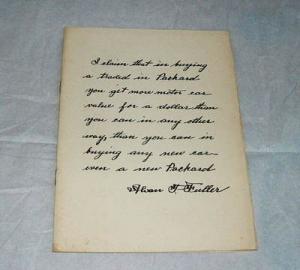 I claim that in buying
a traded in Packard
you get more motor car
value for a dollar than
you can in any other
way, than you can in
buying any new car—
even a new Packard
Alvan T. Fuller